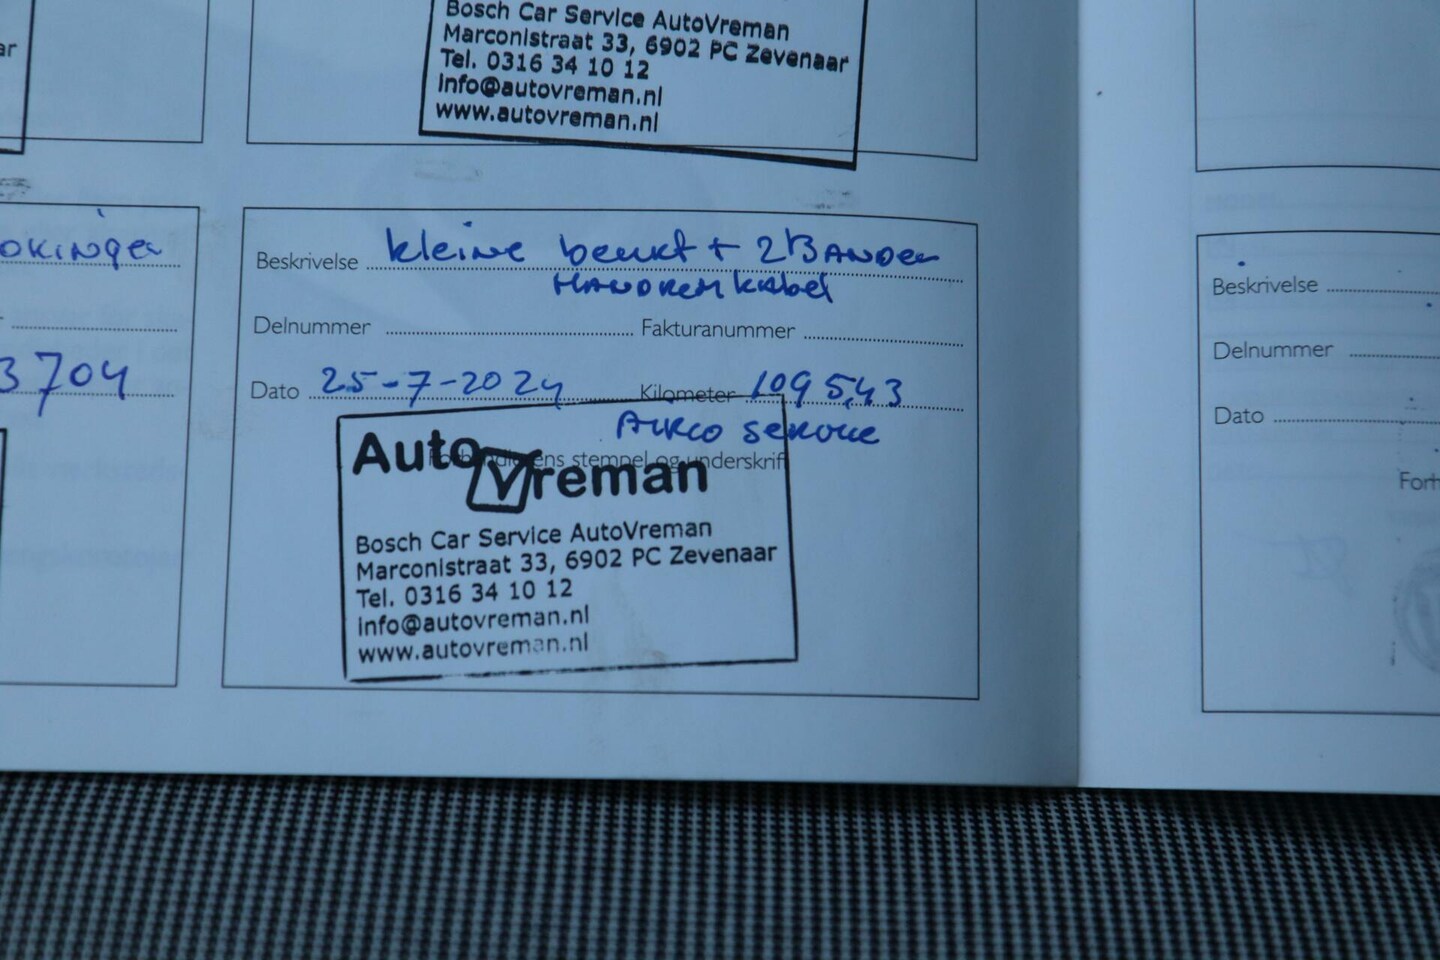 ar
Bosch Car Service AutoVreman
Marconistraat 33, 6902 PC Zevenaar
Tel. 0316 34 10 12
info@autovreman.nl
www.autovreman.nl
Beskrivelse kleine beurt + 2 BANDEN
HANDREM kabel
Delnummer Fakturanummer
Dato 25-7-2024 Kilometer 109543
AIRCO SERVICE
stempel og underskrift
AutoVreman
Bosch Car Service AutoVreman
Marconistraat 33, 6902 PC Zevenaar
Tel. 0316 34 10 12
info@autovreman.nl
www.autovreman.nl
3704
Beskrivelse
Delnummer
Dato
Forh